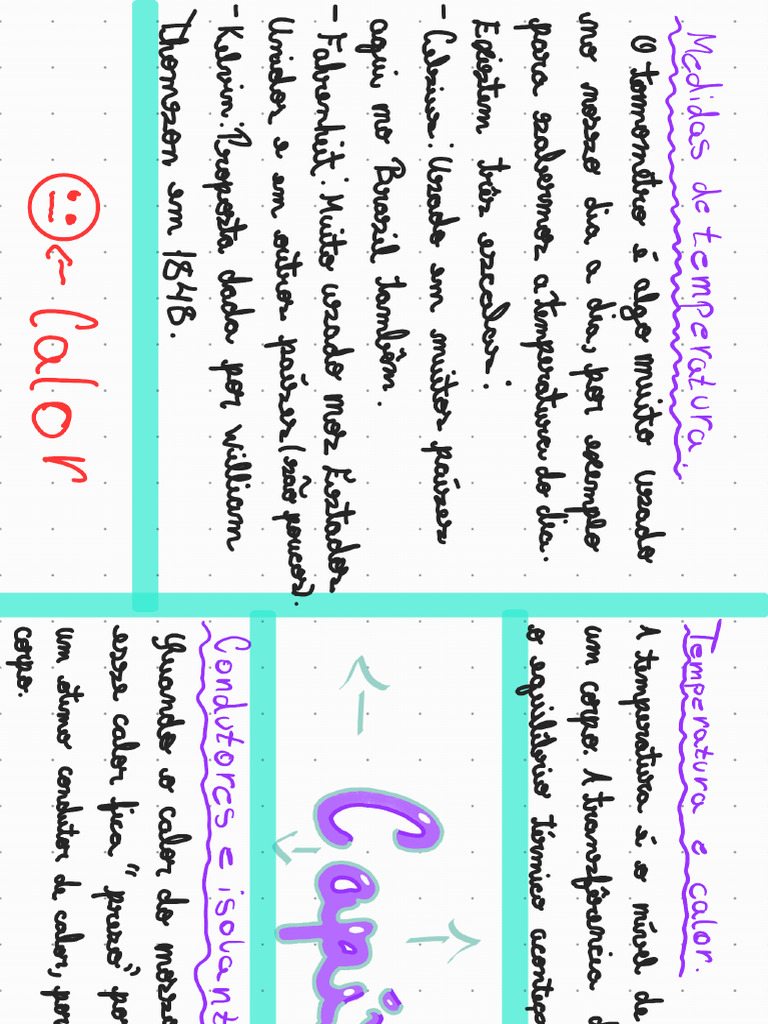 Medidas de temperatura.
O termomêtro é algo muito usado
no nosso dia a dia, por exemplo
para sabermos a temperatura do dia.
Existem três escalas:
- Celsius: Usado em muitos países
aqui no Brasil também.
- Fahrenheit: Muito usado nos Estados
Unidos e em outros países (são poucos).
- Kelvin: Proposta dada por William
Thomson em 1848.
← Calor
Temperatura e calor.
A temperatura é o nível de
um corpo. A transferência d
o equilíbrio térmico acontec
Capí
Condutores e isolant
Quando o calor do nosso
esse calor fica "preso" po
um ótimo condutor de calor, por
corpo.